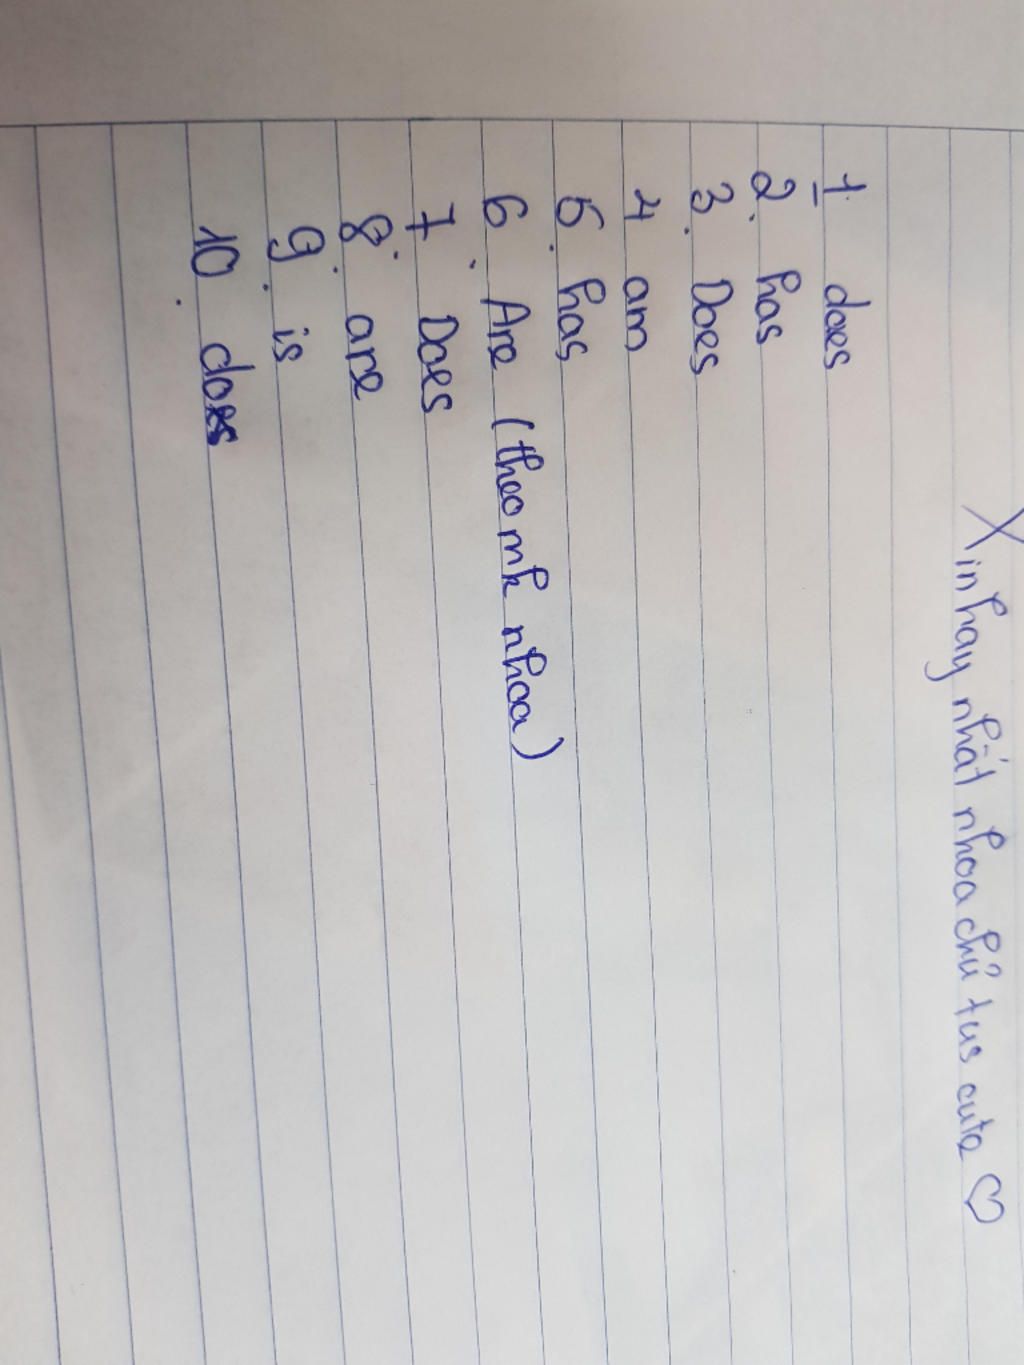 Xin hay nhất nhoa chủ tus cute ♡
1. does
2. has
3. Does
4 am
5. has
6. Are (theo mk nhoa)
7. Does
8. are
9. is
10. does